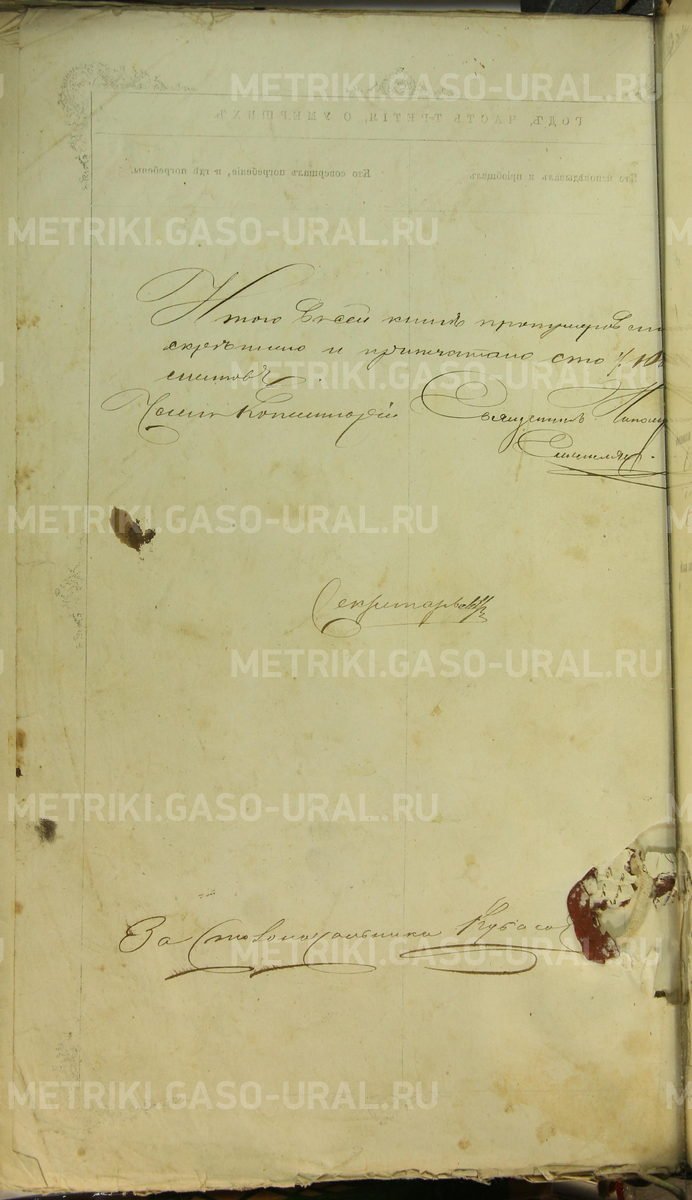 METRIKI.GASO-URAL.RU
ГОДЪ, ЧАСТЬ ТРЕТІЯ, О УМЕРШИХЪ.
Кто исповѣдывалъ и пріобщалъ.
Кто совершалъ погребеніе, и гдѣ погребены.
METRIKI.GASO-URAL.RU
Итого в сей книгѣ пронумеров
скрѣплено и припечатано сто
METRIKI.GASO-URAL.RU
листовъ.
Членъ Священникъ
METRIKI.GASO-URAL.RU
Секретарь
METRIKI.GASO-URAL.RU
METRIKI.GASO-URAL.RU
За Столоначальника Кубасов
METRIKI.GASO-URAL.RU
METRIKI.GASO-URAL.RU